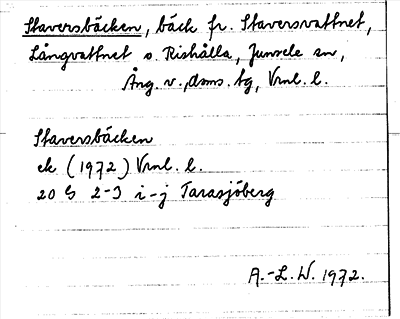 Staversbäcken, bäck fr. Staversvattnet,
Långvattnet o. Rishålla, Junsele sn,
Ång. v., dsms. tg, Vrnl. l.
Staversbäcken
ek (1972) Vrnl. l.
20 G 2-3 i-j Tarasjöberg
A.-L. W. 1972.